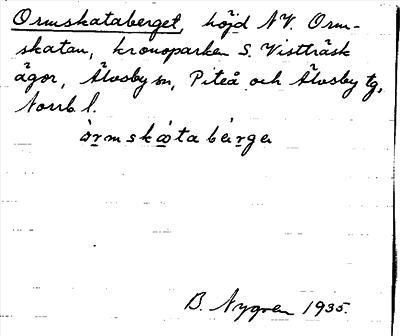 Ormskataberget, höjd NV. Orm-
skatan, kronoparken S. Vistträsk
ägor, Älvsby sn, Piteå och Älvsby tg,
Norrb l.
òrmskataberge
B. Nygren 1935.